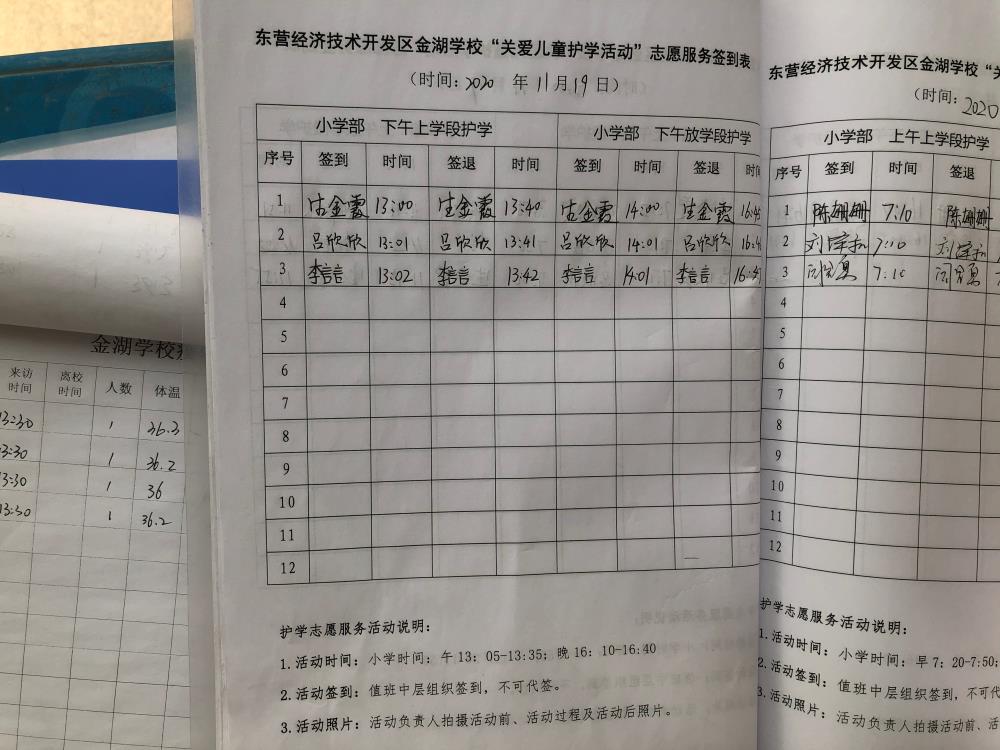 东营经济技术开发区金湖学校“关爱儿童护学活动”志愿服务签到表
（时间：2020 年 11月 19 日）
小学部 下午上学段护学 小学部 下午放学段护学
序号 签到 时间 签退 时间 签到 时间 签退
1 金霞 13:00 金霞 13:40 金霞 14:00 金霞
2 吕欣欣 13:01 吕欣欣 13:41 吕欣欣 14:01 吕欣欣
3 李言言 13:02 李言言 13:42 李言言 14:01 李言言
4
5
6
7
8
9
10
11
12
护学志愿服务活动说明：
1.活动时间：小学时间：午 13：05-13:35；晚 16：10-16:40
2.活动签到：值班中层组织签到，不可代签。
3.活动照片：活动负责人拍摄活动前、活动过程及活动后照片。
东营经济技术开发区金湖学校“
（时间：2020
小学部 上午上学段护学
序号 签到 时间 签退
1 陈姗姗 7:10 陈姗姗
2 7:10
3 7:10
4
5
6
7
8
9
10
11
12
护学志愿服务活动说明：
1.活动时间：小学时间：早 7：20-7:50；
2.活动签到：值班中层组织签到，不可代
3.活动照片：活动负责人拍摄活动前、活
金湖学校
来访时间 离校时间 人数 体温
13:30 1 36.3
13:30 1 36.2
13:30 1 36
13:30 1 36.2